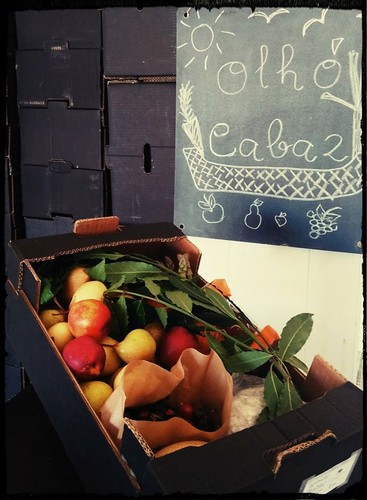 Olhó
Cabaz